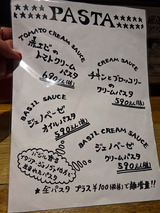 PASTA
TOMATO CREAM SAUCE
海老の
トマトクリーム
パスタ
690円(税込)
CREAM SAUCE
チキンとブロッコリーの
クリームパスタ
590円(税込)
BASIL SAUCE
ジェノベーゼ
オイルパスタ
590円(税込)
BASIL CREAM SAUCE
ジェノベーゼ
クリームパスタ
690円(税込)
全パスタ プラス¥100(税抜)で麺増量!!